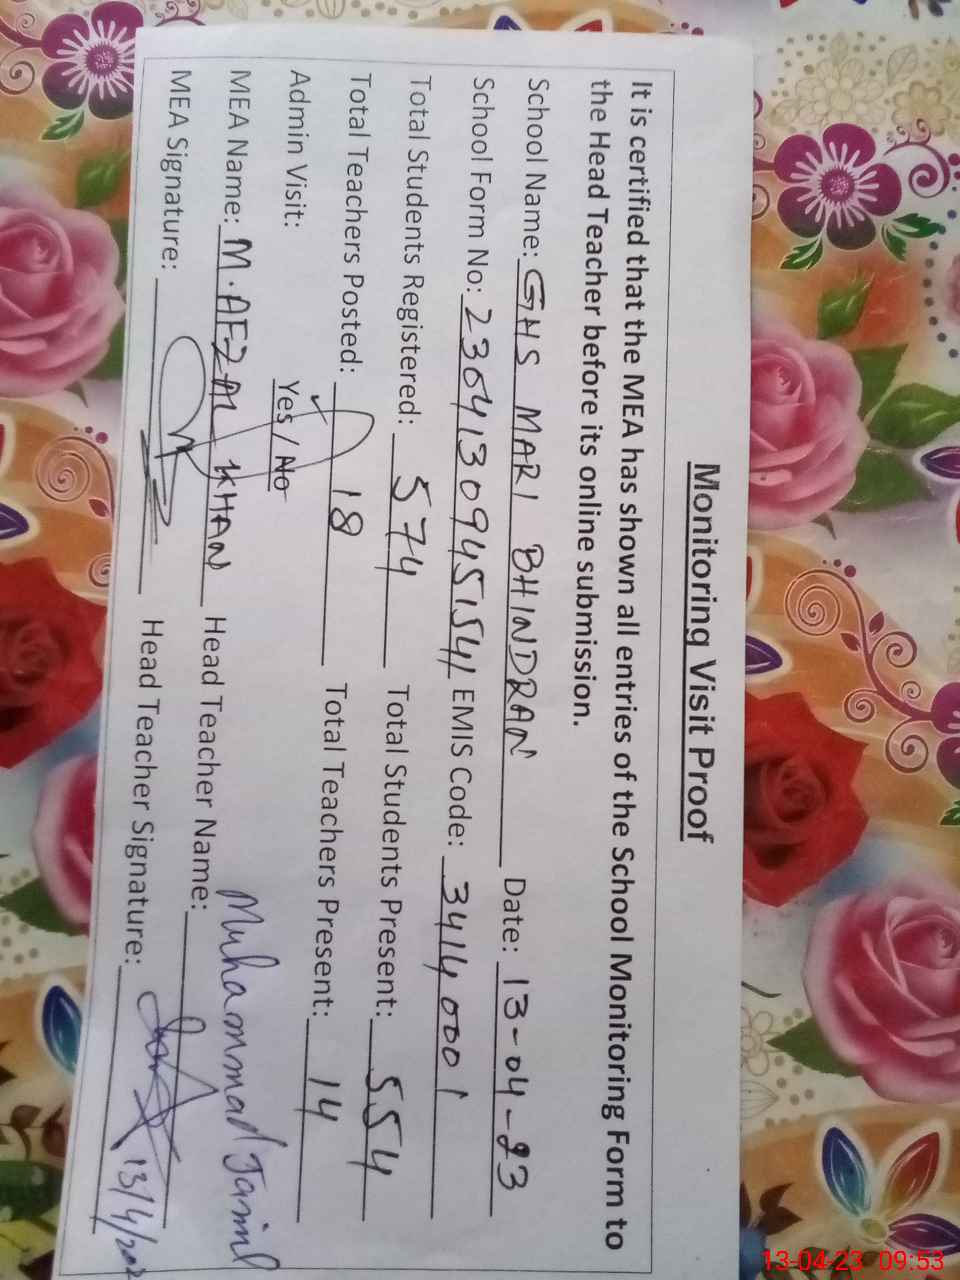 Monitoring Visit Proof
It is certified that the MEA has shown all entries of the School Monitoring Form to
the Head Teacher before its online submission.
School Name: GHS MARI BHINDRAN Date: 13-04-23
School Form No: 23641309451541 EMIS Code: 34140001
Total Students Registered: 574 Total Students Present: 554
Total Teachers Posted: 18 Total Teachers Present: 14
Admin Visit: Yes / No
MEA Name: M.AFZAL KHAN Head Teacher Name: Muhammad Jamil
MEA Signature: Head Teacher Signature: 13/4/202
13-04-23 09:53